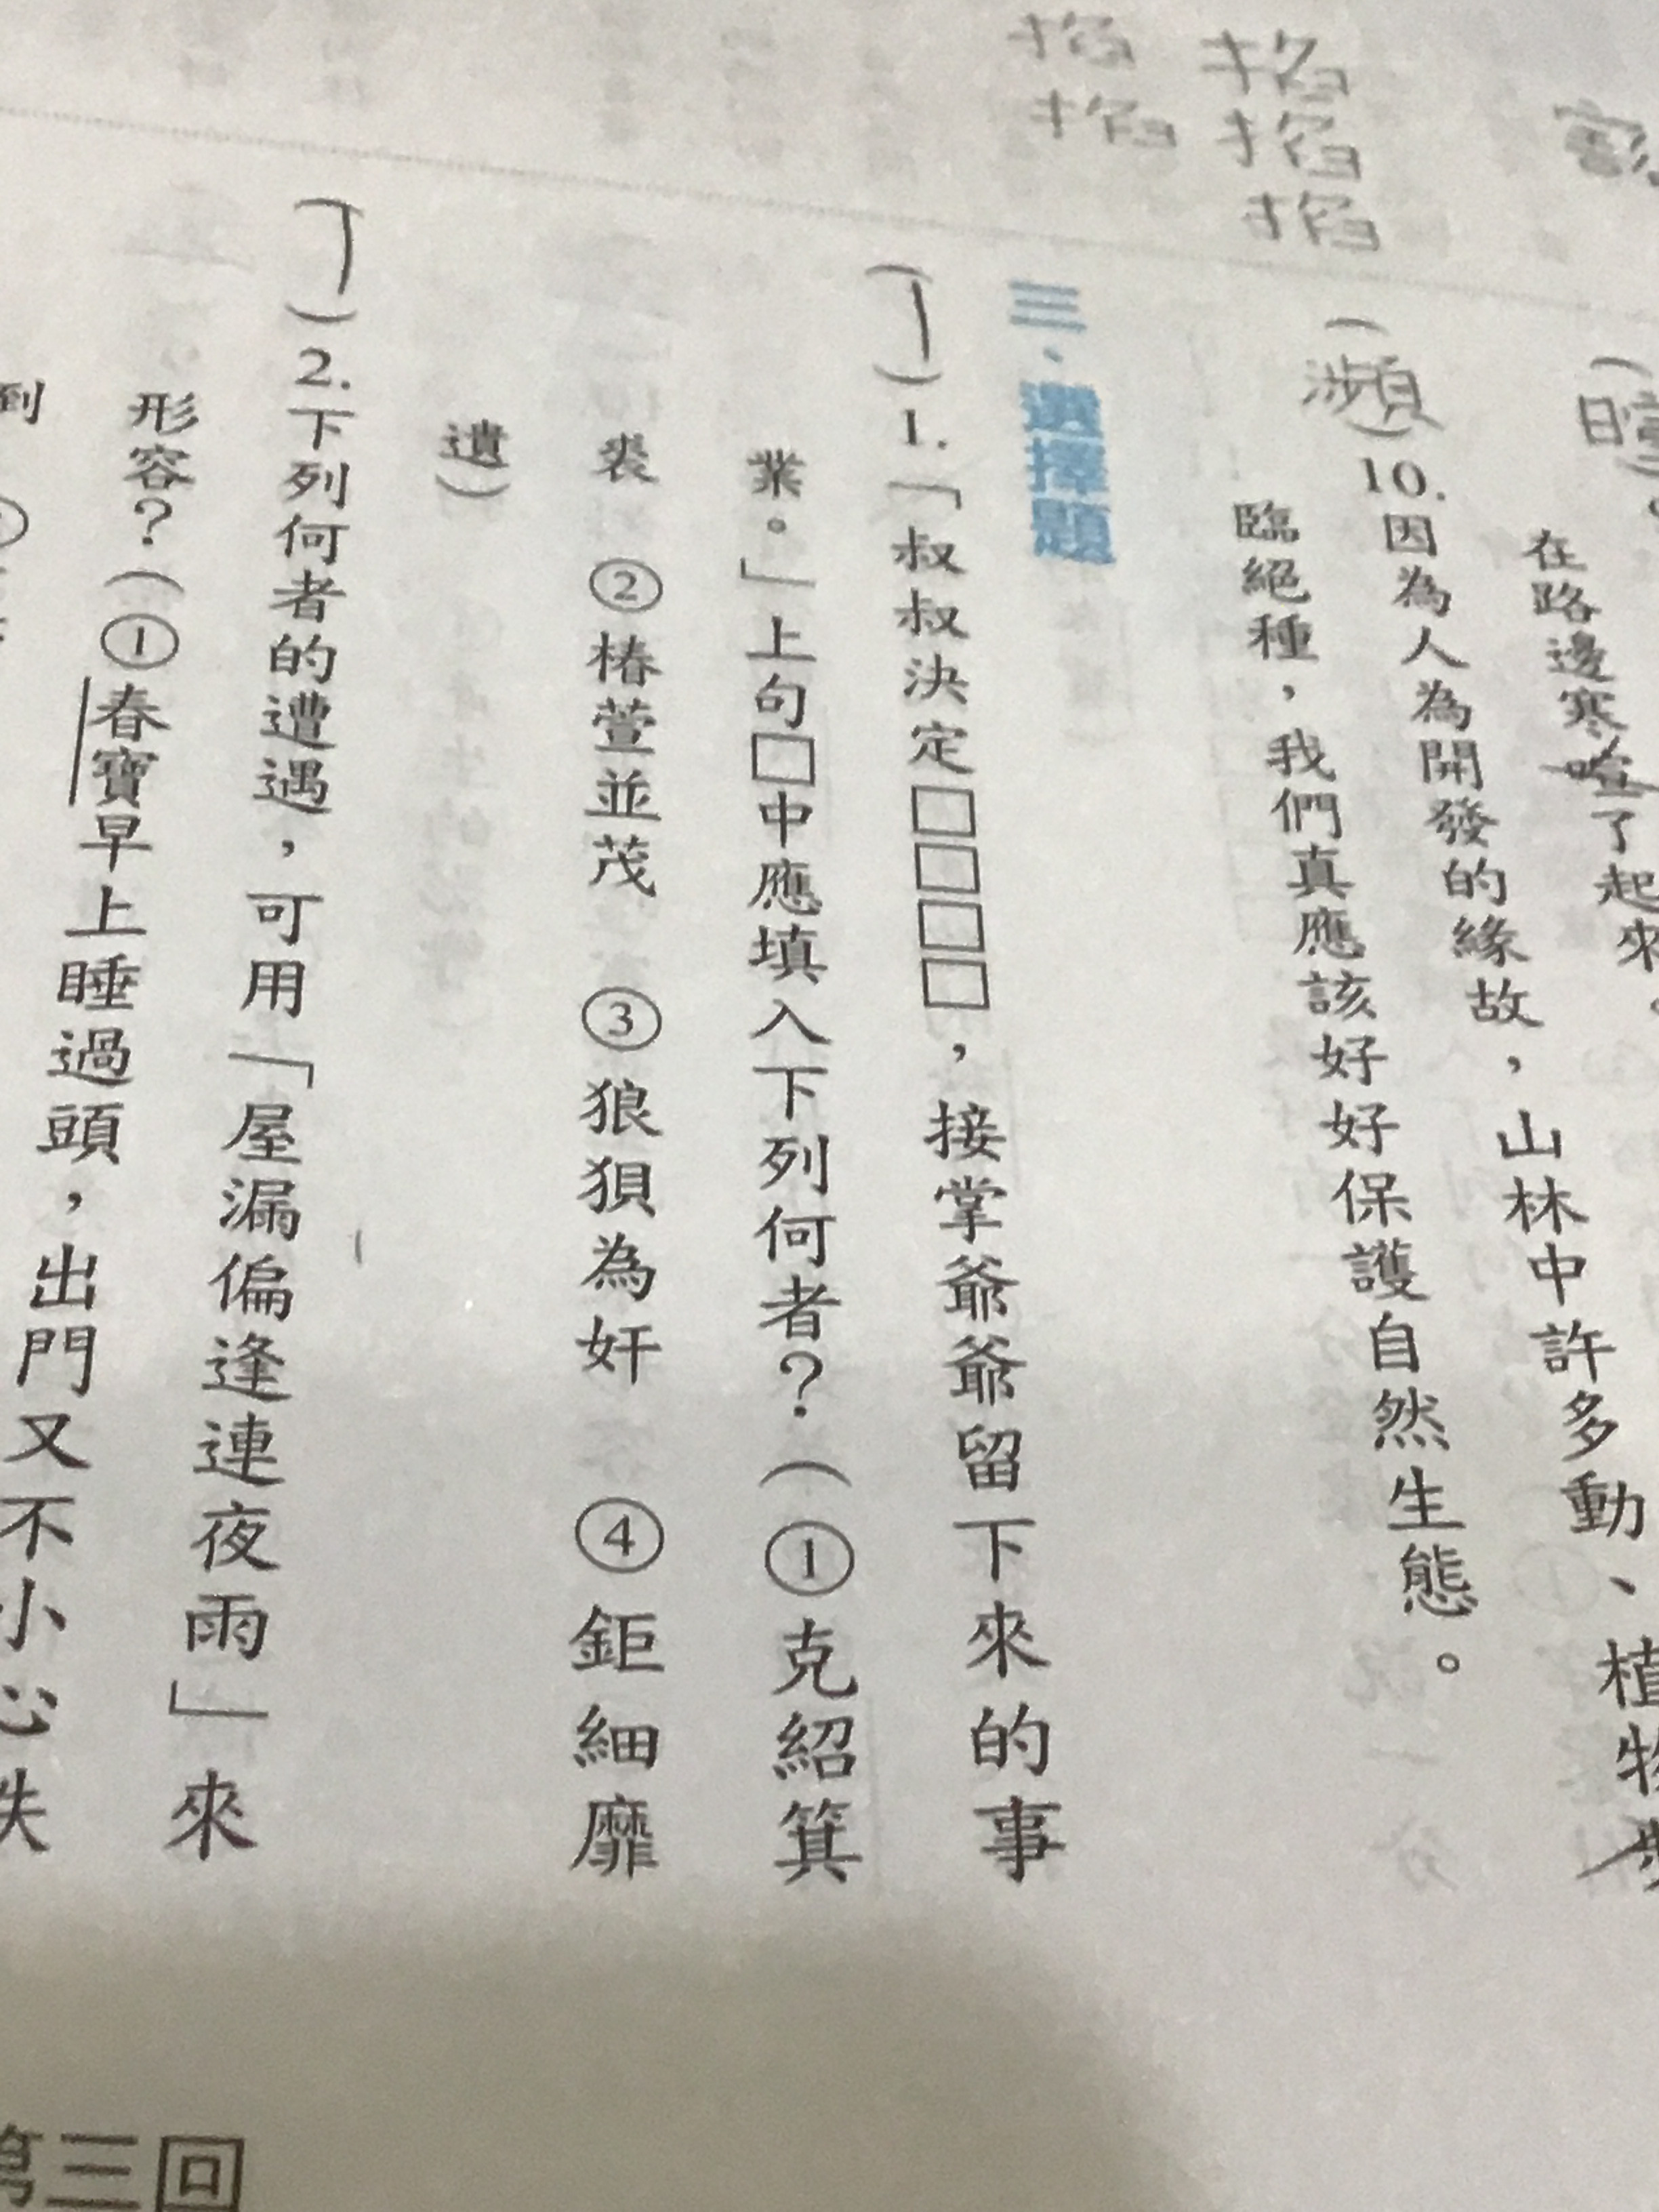 掐
掐
掐
掐
掐
在路邊寒暄了起來。
(瀕)10.因為人為開發的緣故，山林中許多動、植物
臨絕種，我們真應該好好保護自然生態。
三、選擇題
(1)1.「叔叔決定□□□□，接掌爺爺留下來的事
業。」上句□中應填入下列何者？(①克紹箕
裘 ②椿萱並茂 ③狼狽為奸 ④鉅細靡
遺)
(1)2.下列何者的遭遇，可用「屋漏偏逢連夜雨」來
形容？(①春寶早上睡過頭，出門又不小心跌
到
第三回